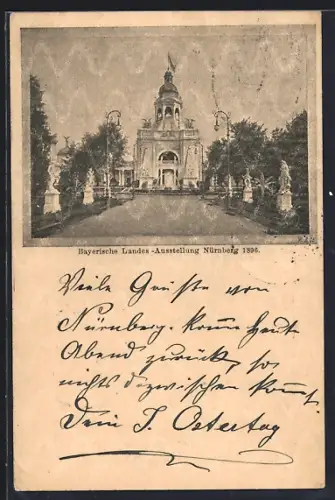 Bayerische Landes-Ausstellung Nürnberg 1896.
Viele Grüsse von
Nürnberg. Komme heut
Abend zurück, so
nichts dazwischen kommt.
Dein J. Ostertag